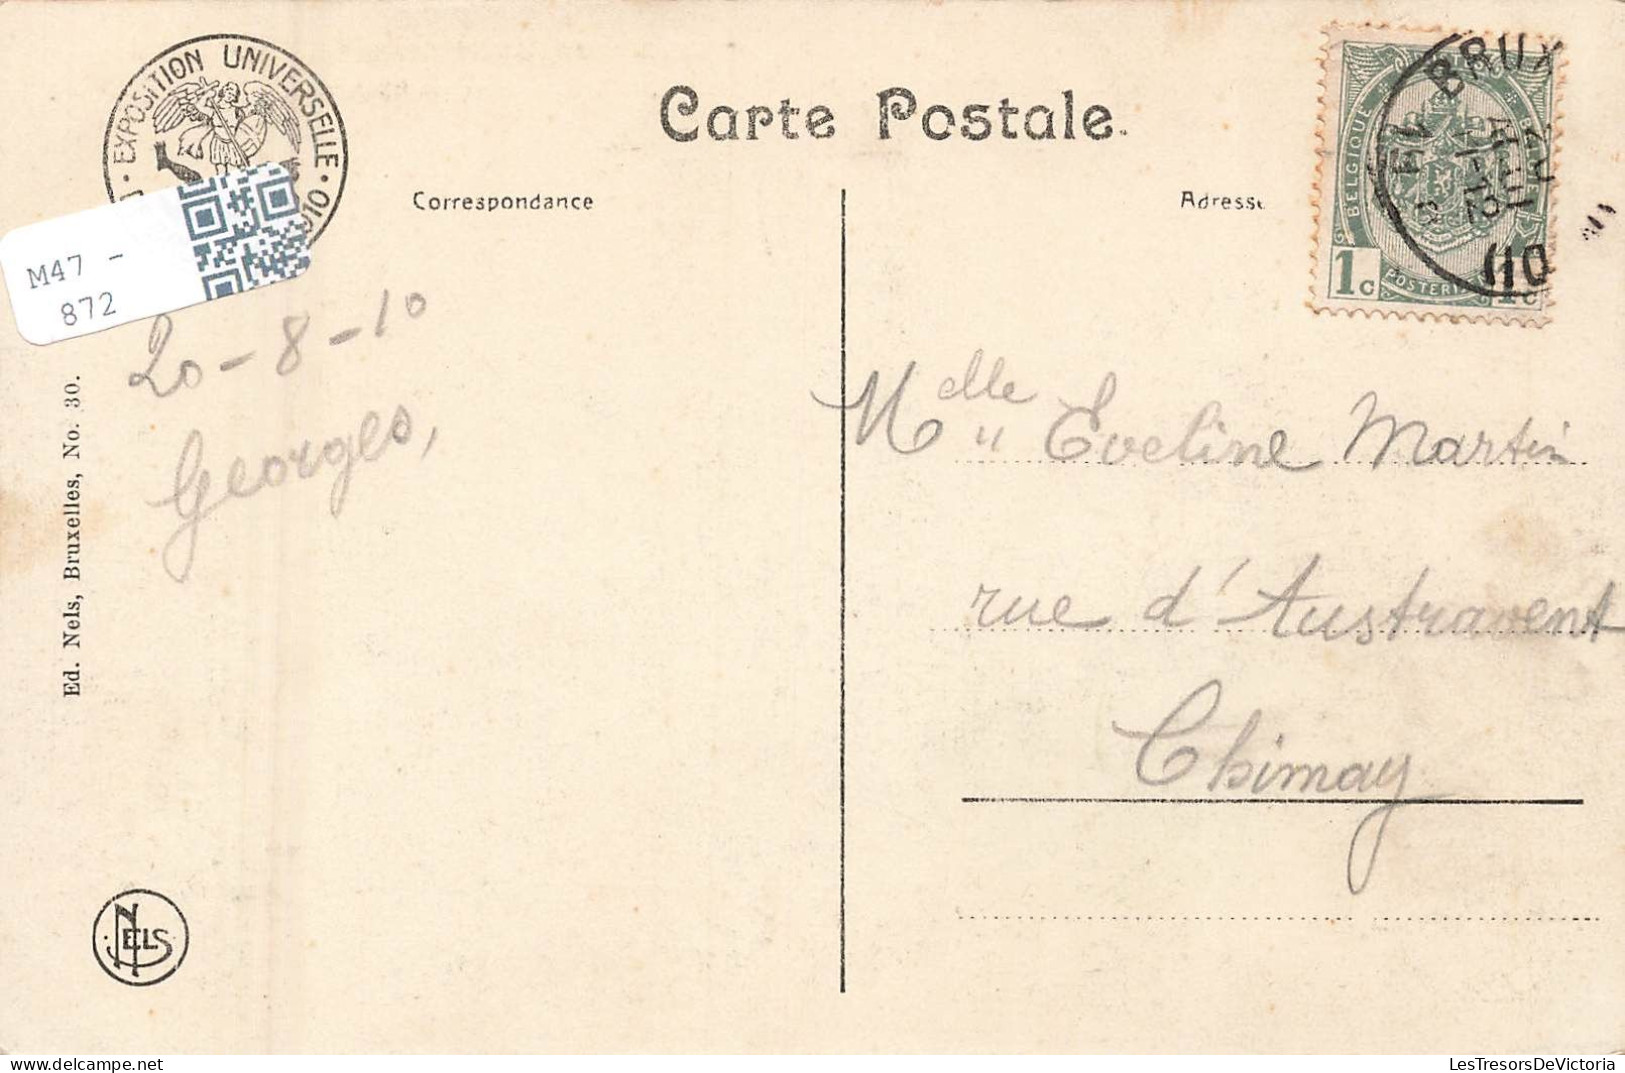 · EXPOSITION UNIVERSELLE ·
Carte Postale.
Correspondance
Adresse
BRUX
11-12
10
BELGIQUE
1c
POSTERIJEN
1c
M47 -
872
20-8-10
Georges,
Melle Eveline Martin
rue d'Austravent
Chimay
Ed. Nels, Bruxelles, No. 30.
NELS
LesTresorsDeVictoria